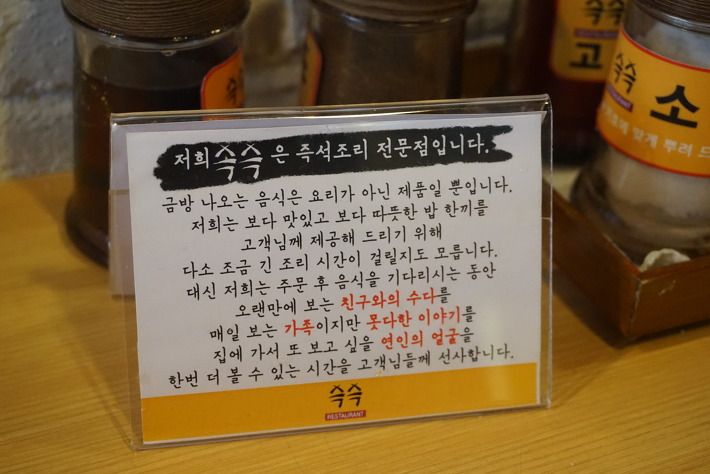 저희 쓱쓱은 즉석조리 전문점입니다.
금방 나오는 음식은 요리가 아닌 제품일 뿐입니다.
저희는 보다 맛있고 보다 따뜻한 밥 한끼를
고객님께 제공해 드리기 위해
다소 조금 긴 조리 시간이 걸릴지도 모릅니다.
대신 저희는 주문 후 음식을 기다리시는 동안
오랜만에 보는 친구와의 수다를
매일 보는 가족이지만 못다한 이야기를
집에 가서 또 보고 싶을 연인의 얼굴을
한번 더 볼 수 있는 시간을 고객님들께 선사합니다.
쓱쓱
RESTAURANT
쓱쓱
고
쓱쓱
RESTAURANT
소
맞게 뿌려 드